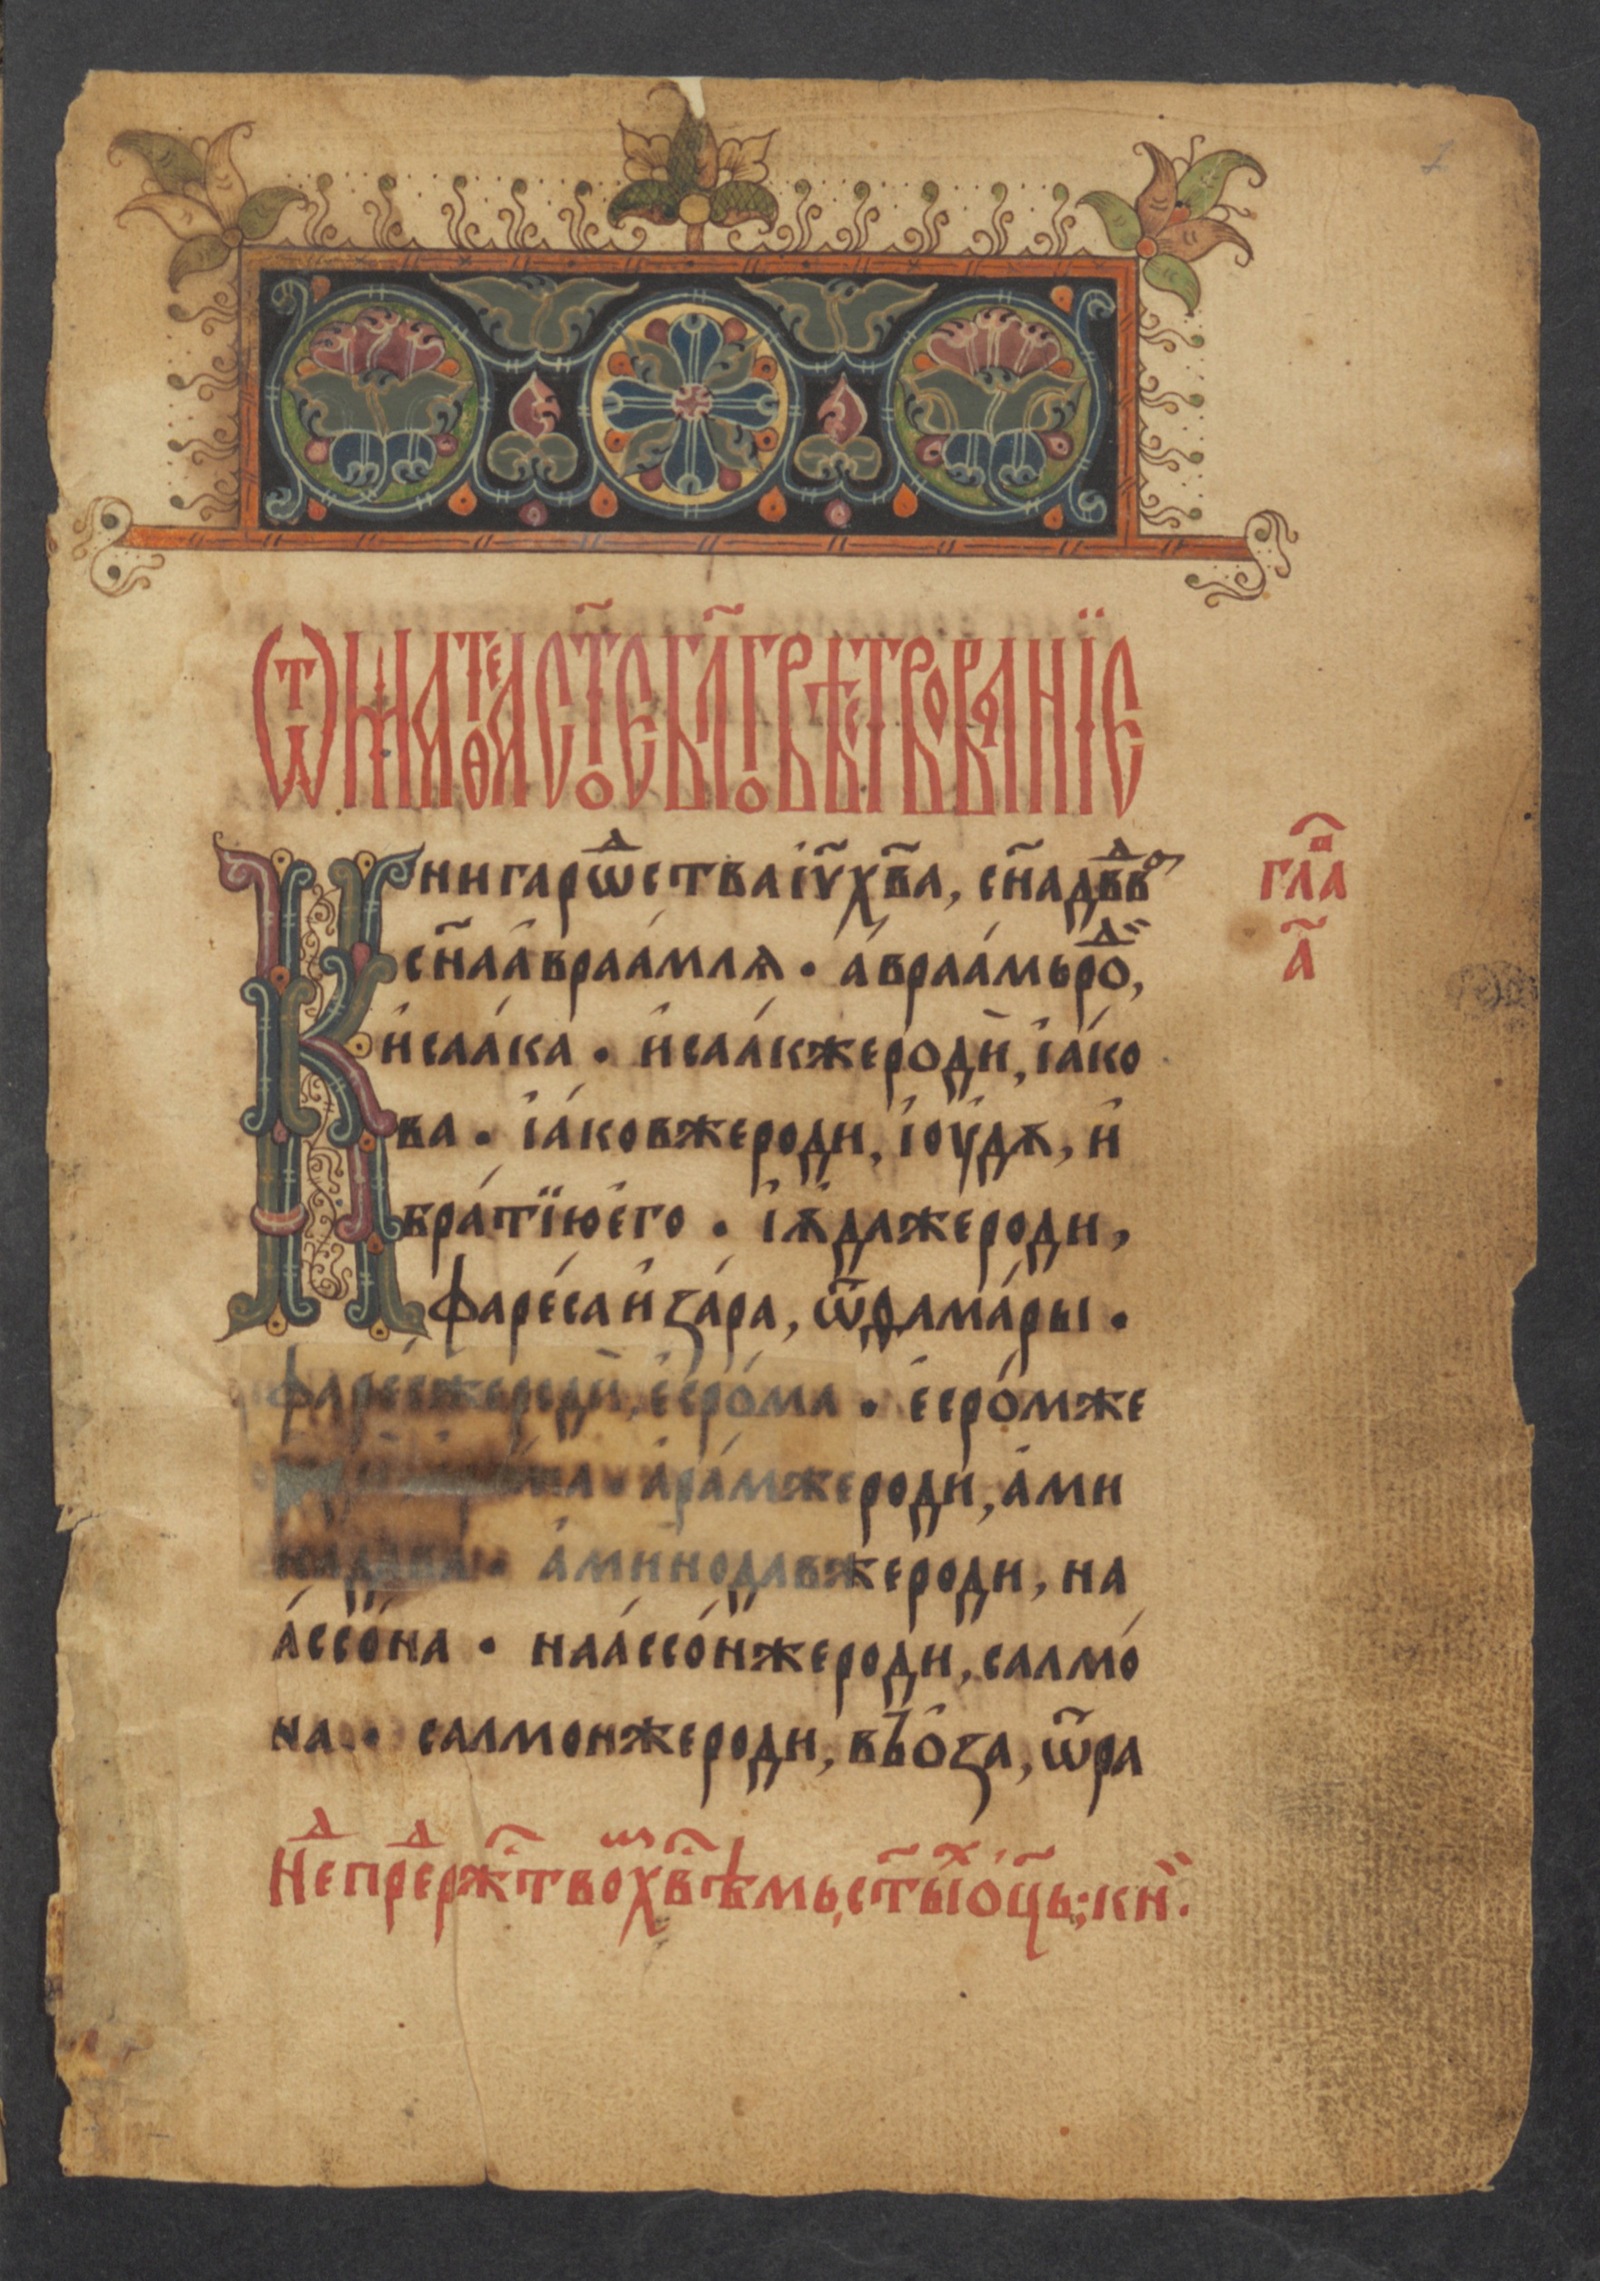 Ѿ мат꙼еѳеа ст҃ое бл҃говѣствованїе
Книга рѡⷣства і҆у҃ хв҃а, сн҃а дв҃дв
гл҃а
сн҃а а҆враа́млѧ · а҆враа́мь роⷣ,
а҃
и҆саа́ка · и҆саа́к же родѝ, і҆а́ко
ва · і҆а́ков же роди, і҆оу҆дѫ, и҆
бра́тїю е҆го · і҆ѫ҆да же роди,
фаре́са и҆ за́ра, ѿ ѳама́ры ·
фаре́с же родѝ, е҆сро́ма · е҆сро́м же
а҆ра́м же роди, а҆ми
надава · а҆минодав же роди, на
а҆ссо́на · наа҆ссо́н же роди, салмо́
на · салмон же роди, во́о҆за, ѿ ра
Неⷣ преⷣ ржⷭ҇твоⷨ хв҃ѣмь, ст҃ыⷯ о҆ц҃ь; кн҃.